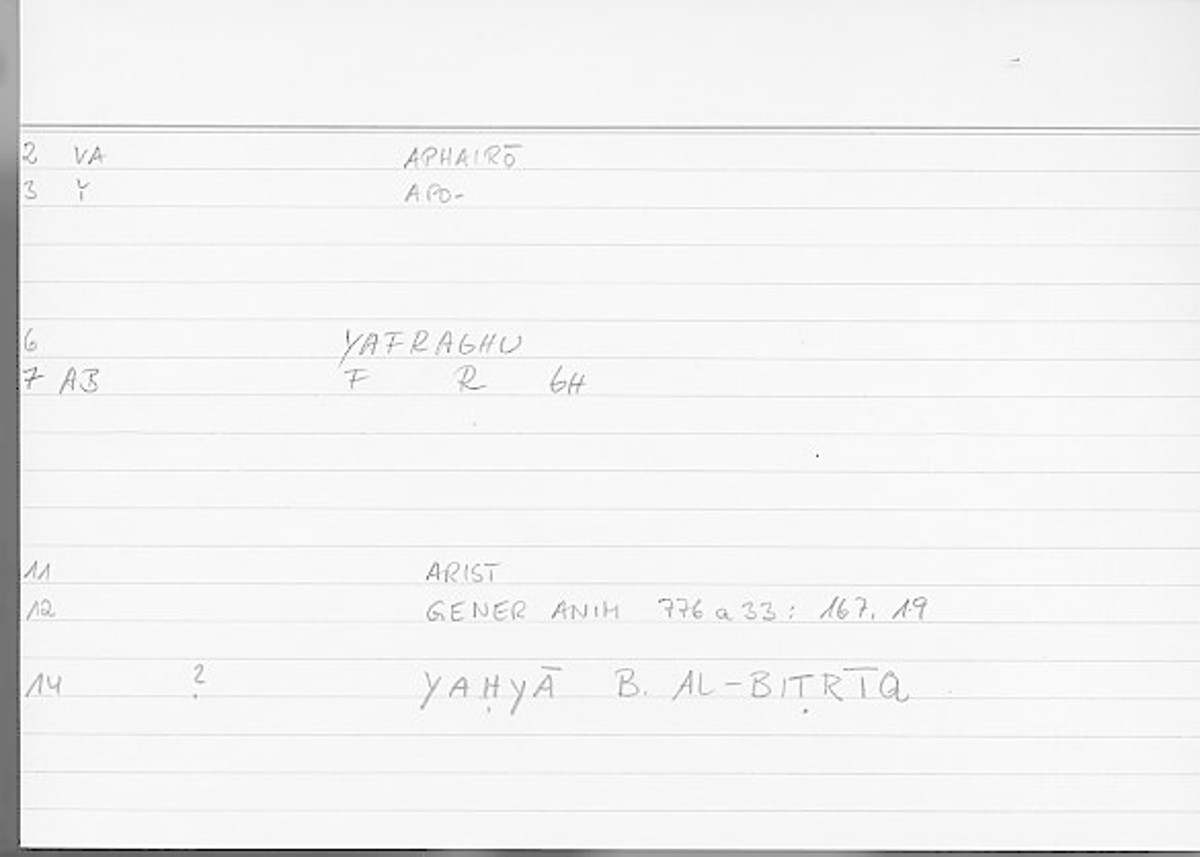 2 VA APHAIRŌ
3 Y APO-
6 YAFRAGHU
7 AB F R GH
11 ARIST
12 GENER ANIM 776 a 33 : 167, 19
14 ? YAḤYĀ B. AL-BIṬRĪQ